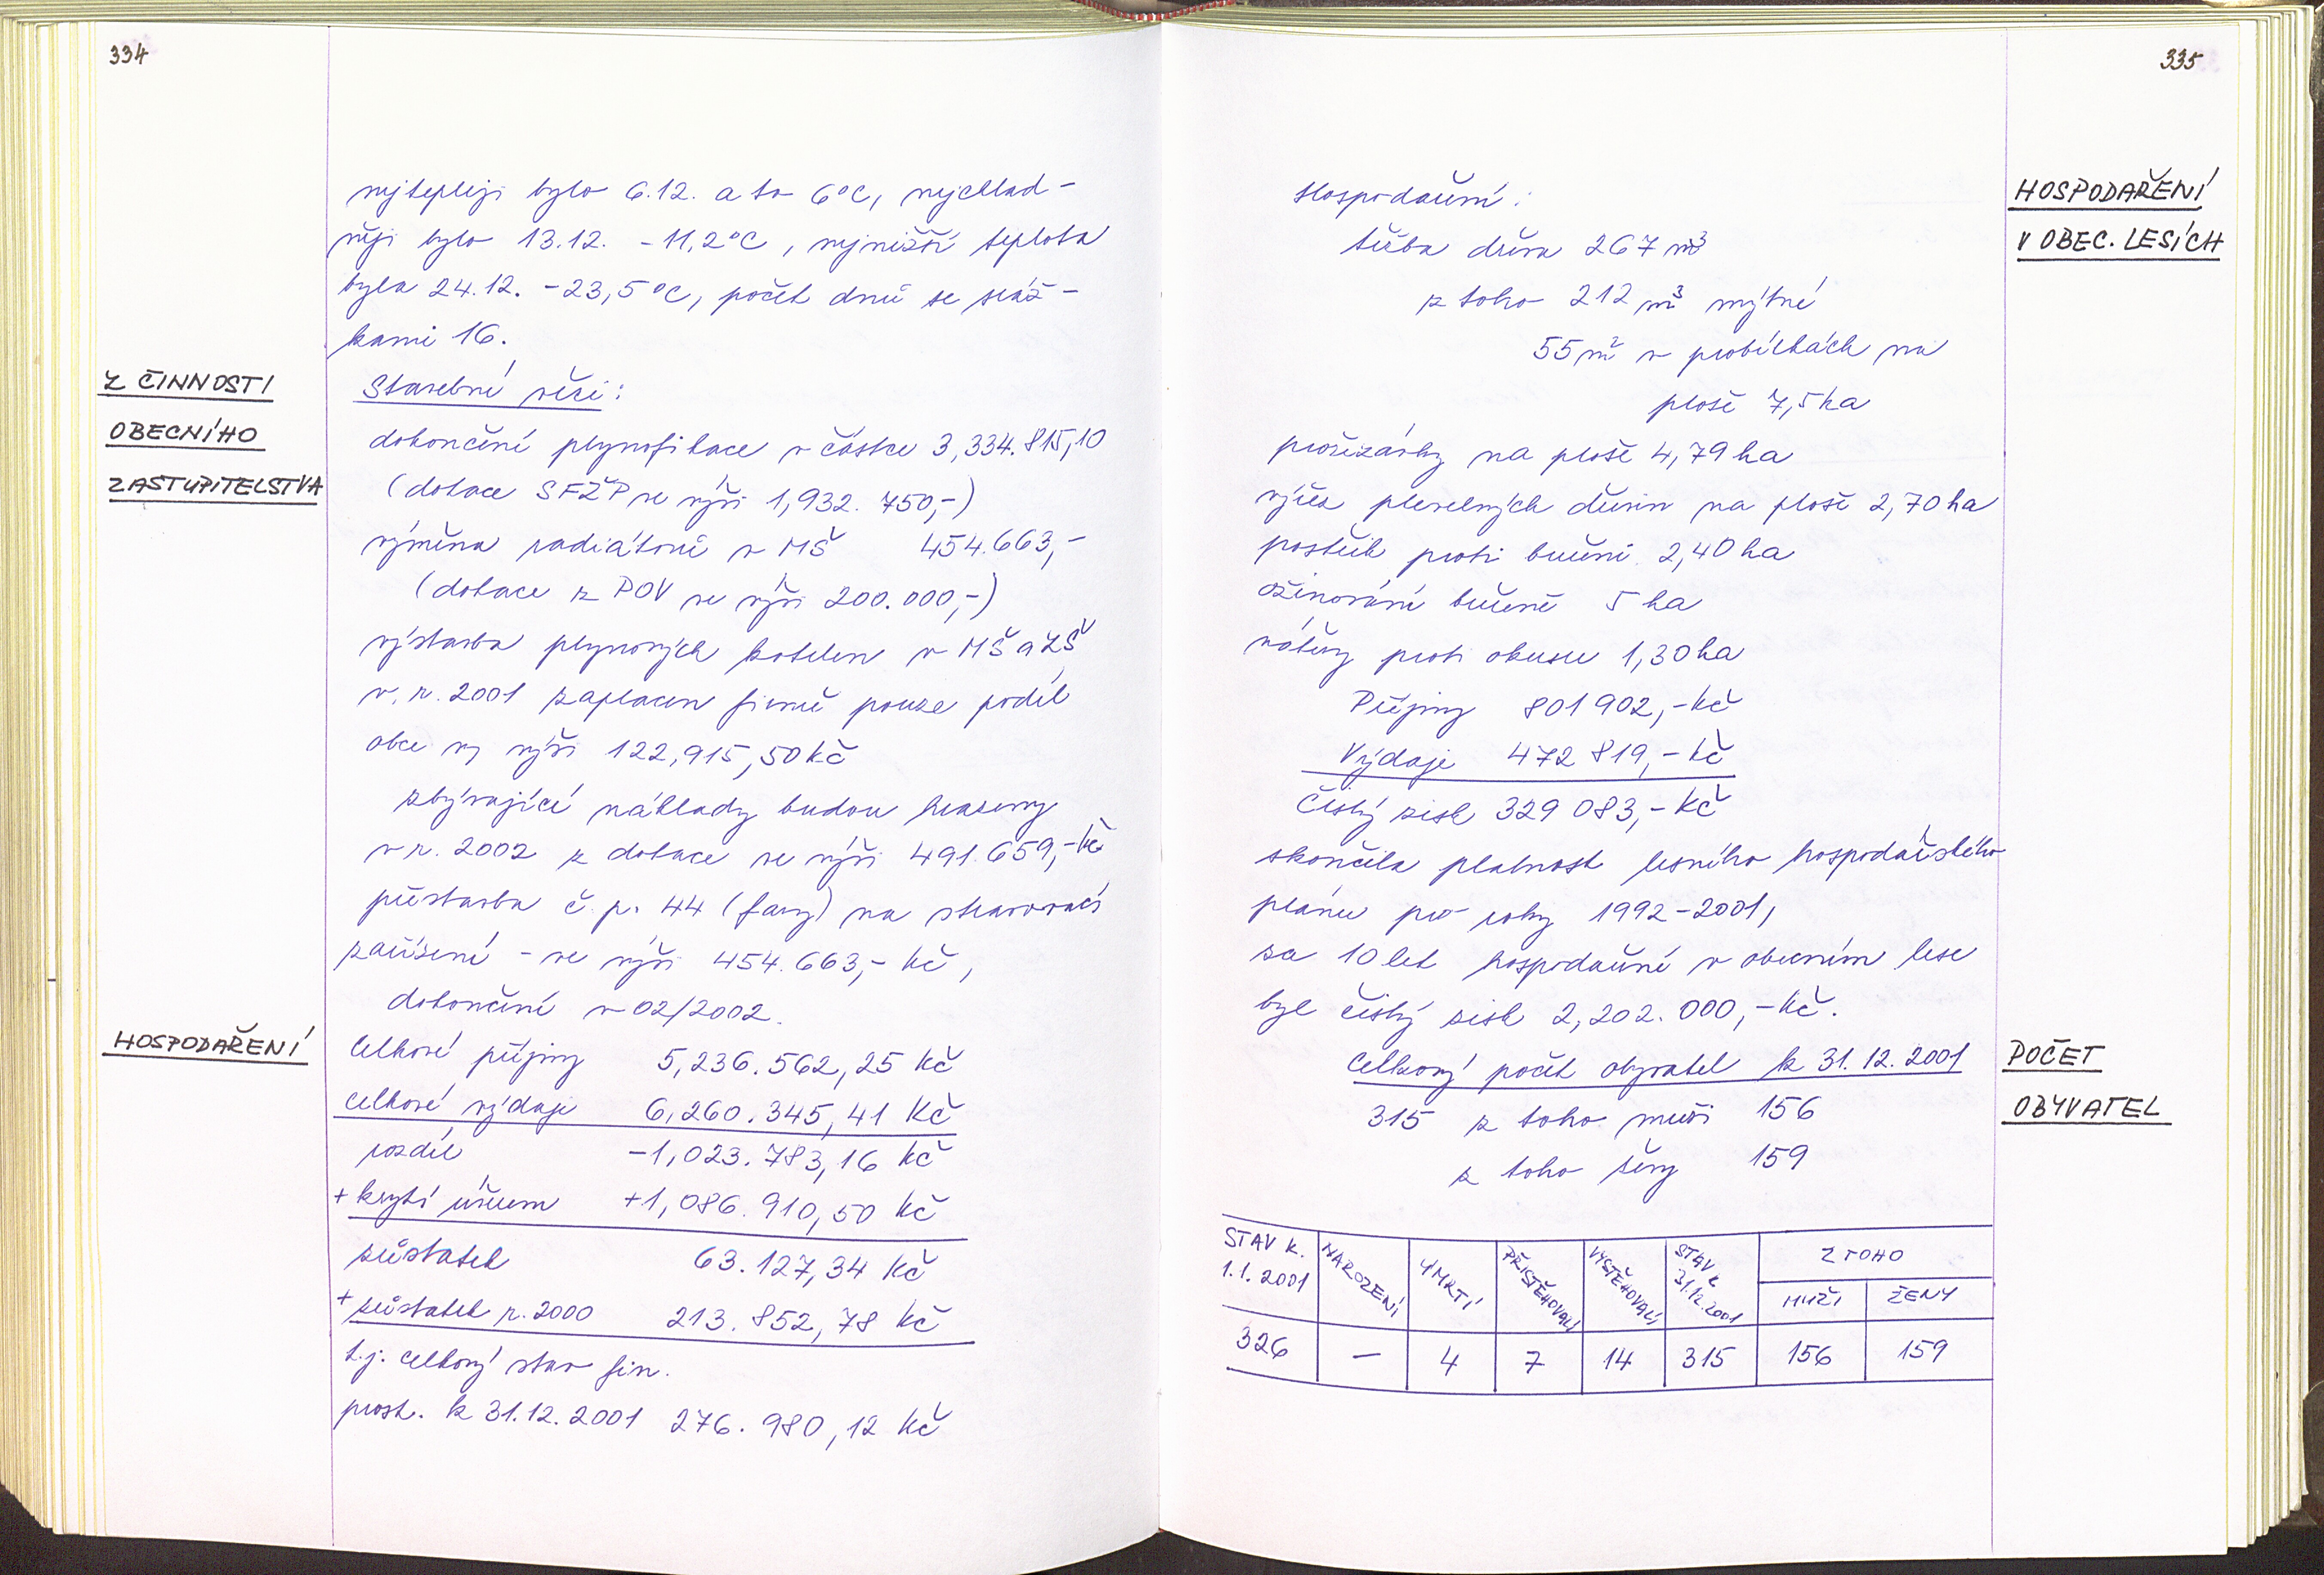 334
nejtepleji bylo 6.12. a to 6°C, nejchlad-
něji bylo 13.12. -11,2°C, nejnižší teplota
byla 24.12. -23,5°C, počet dnů se sráž-
kami 16.
Z ČINNOSTI
OBECNÍHO
ZASTUPITELSTVA
Stavební věci:
dokončení plynofikace v částce 3,334.815,10
(dotace SFŽP ve výši 1,932.750,-)
výměna radiátorů v MŠ 454.663,-
(dotace z POV ve výši 200.000,-)
výstavba plynových kotelen v MŠ a ZŠ
v. r. 2001 zaplacen firmě pouze podíl
obce vy výši 122,915,50 Kč
zbývající náklady budou hrazeny
v r. 2002 z dotace ve výši 491.659,- Kč
přístavba č. p. 44 (fary) na stravovací
zařízení - ve výši 454.663,- Kč,
dokončení v 02/2002.
HOSPODAŘENÍ
Celkové příjmy 5,236.562,25 Kč
celkové výdaje 6,260.345,41 Kč
rozdíl -1,023.783,16 Kč
+ krytí úvěrem +1,086.910,50 Kč
zůstatek 63.127,34 Kč
+ zůstatek r. 2000 213.852,78 Kč
t.j. celkový stav fin.
prost. k 31.12.2001 276.980,12 Kč
335
HOSPODAŘENÍ
V OBEC. LESÍCH
Hospodaření:
těžba dřeva 267 m³
z toho 212 m³ mýtné
55 m³ v probírkách na
ploše 7,5 ha
prořezávky na ploše 4,79 ha
výřez plevelných dřevin na ploše 2,70 ha
postřik proti buřeni 2,40 ha
ožinování buřeně 5 ha
nátěry proti okusu 1,30 ha
Příjmy 801 902,- Kč
Výdaje 472 819,- Kč
Čistý zisk 329 083,- Kč
skončila platnost lesního hospodářského
plánu pro roky 1992-2001,
za 10 let hospodaření v obecním lese
byl čistý zisk 2,202.000,- Kč.
POČET
OBYVATEL
Celkový počet obyvatel k 31.12.2001
315 z toho muži 156
z toho ženy 159
STAV K. 1.1.2001 NAROZENÍ UMRTÍ PŘISTĚHOVALÍ VYSTĚHOVALÍ STAV K 31.12.2001 Z TOHO
MUŽI ŽENY
326 — 4 7 14 315 156 159